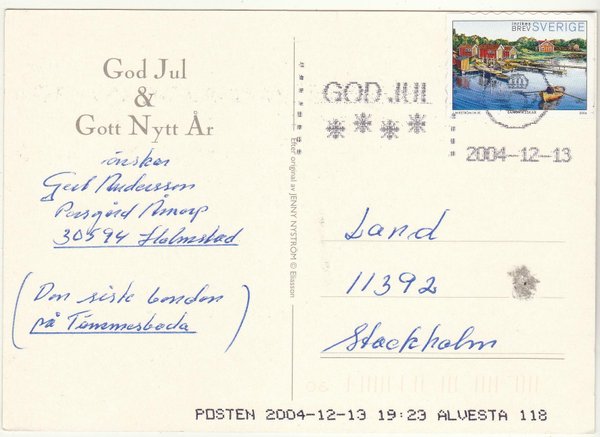 God Jul
&
Gott Nytt År
önskar
Gert Andersson
30594 Halmstad
(Den siste bonden
på Timmesboda)
Efter original av JENNY NYSTRÖM © Eliasson
GOD JUL
inrikes
BREV SVERIGE
2004-12-13
Land
11392
Stockholm
POSTEN 2004-12-13 19:23 ALVESTA 118